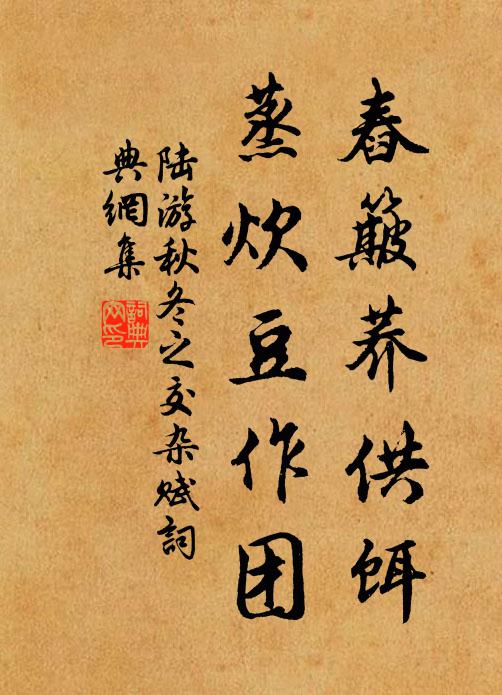 舂簸荞供饵
蒸炊豆作团
陆游秋冬之交杂赋詞
典網集
詞典
网印